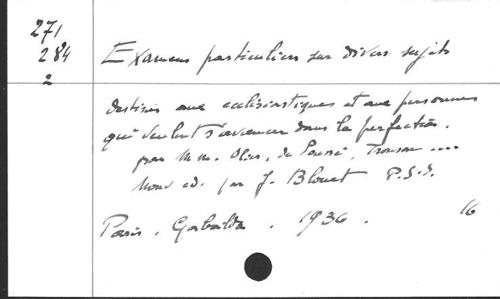 271
284
2
Examens particuliers sur divers sujets
destinés aux ecclésiastiques et aux personnes
qui veulent s'avancer dans la perfection.
par M.M. Olier, de Poussé, Tronson ....
Nouv. éd. par J. Blouet P.S.S.
Paris. Gabalda. 1936. 16